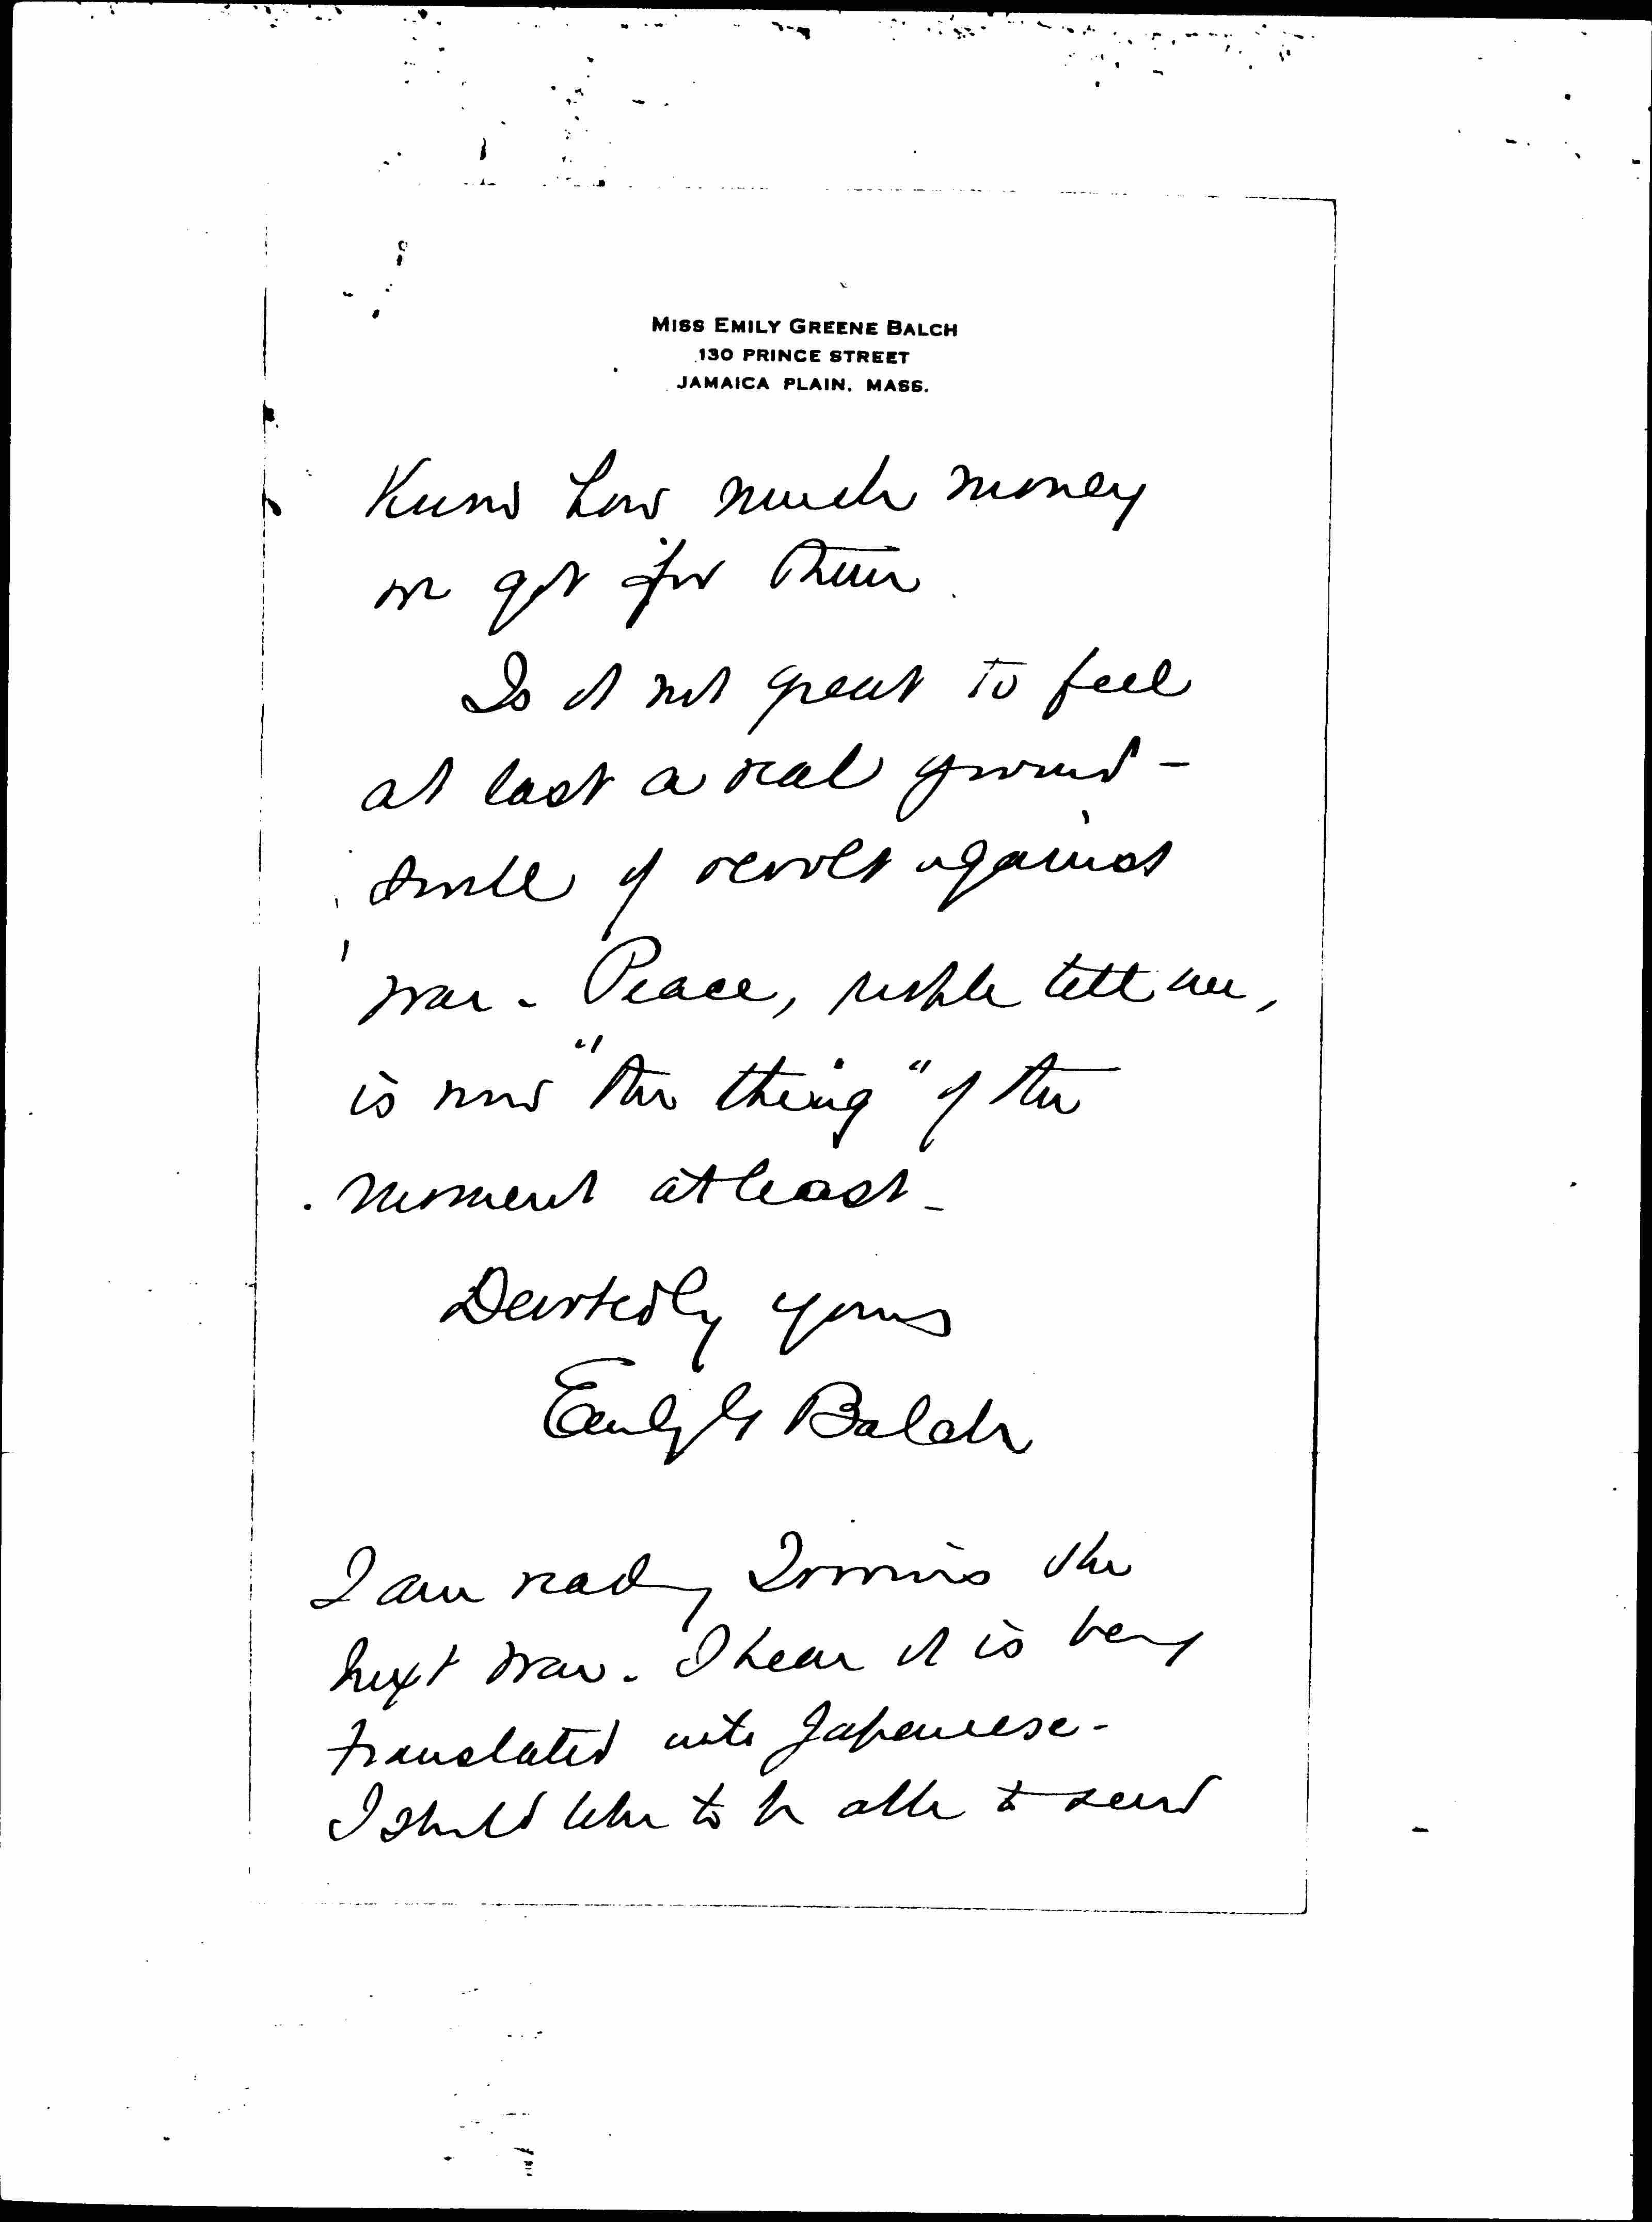 MISS EMILY GREENE BALCH
130 PRINCE STREET
JAMAICA PLAIN, MASS.
Know how much money
we got for them.
Is it not great to feel
at last a real ground-
swell of revolt against
war - Peace, people tell me,
is now "the thing" of the
moment at least -
yours
Emily G Balch
I am reading Irwin's the
next war. I hear it is being
translated into Japanese -
I should like to be able to send